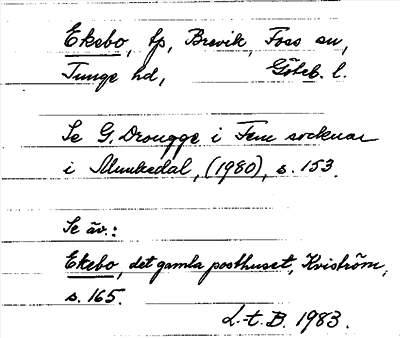 Ekebo, tp, Brevik, Foss sn,
Tunge hd, Göteb. l.
Se G. Drougge i Fem socknar
i Munkedal, (1980), s. 153.
Se äv.:
Ekebo, det gamla posthuset, Kviström,
s. 165.
L-t. B. 1983.